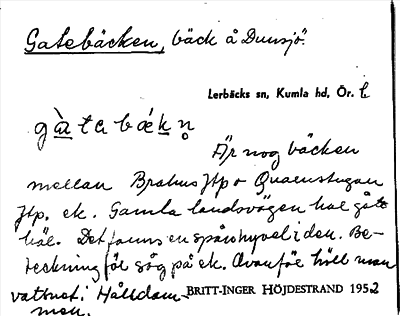 Gatebäcken, bäck å Dunsjö.
Lerbäcks sn, Kumla hd, Ör. l.
gàtebäkn
Är nog bäcken
mellan Brahus Htp o Quarnstugan
Htp. ek. Gamla landsvägen har gått
här. Det fanns en spånhyvel i den. Be-
teckning för såg på ek. Ovanför höll man
vattnet i Hålldam-
men.
BRITT-INGER HÖJDESTRAND 1952